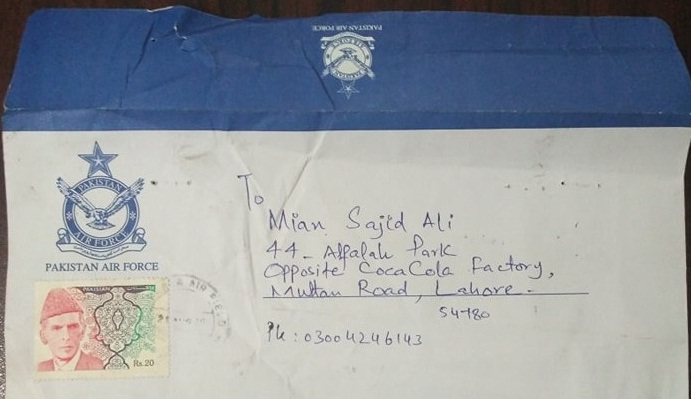 PAKISTAN AIR FORCE
PAKISTAN
AIR FORCE
PAKISTAN AIR FORCE
PAKISTAN
Rs.20
To
Mian Sajid Ali
44-Alfalah Park
Opposite CocaCola Factory,
Multan Road, Lahore-
54780
Ph: 03004246143